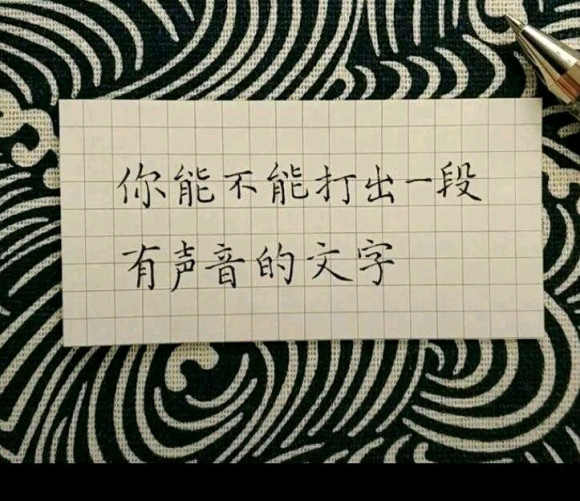 你能不能打出一段
有声音的文字